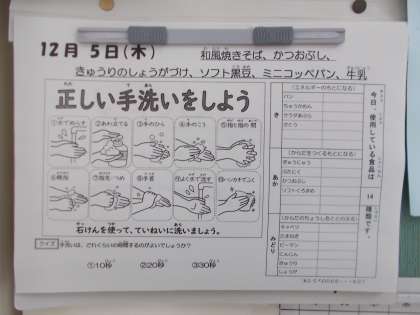 12月 5日(木)
和風焼きそば、かつおぶし、
きゅうりのしょうがづけ、ソフト黒豆、ミニコッペパン、牛乳
正しい手洗いをしよう
①水でぬらす
②あわ立てる
③手のひら
④手のこう
⑤指と指の間
⑥親指
⑦指先・つめ
⑧手首
⑨よく水で流す
⑩ハンカチでふく
石けんを使って、ていねいに洗いましょう。
クイズ
手洗いは、どれくらいの時間するのがよいでしょうか?
①10秒 ②20秒 ③30秒
今日、使用している食品は 14 種類です。
き
(エネルギーのもとになる)
パン
ちゅうかめん
サラダあぶら
さとう
あか
(からだをつくるもとになる)
ぎゅうにゅう
ぶたにく
かつおぶし
ソフトくろまめ
みどり
(からだのちょうしをととのえる)
キャベツ
たまねぎ
ピーマン
にんじん
きゅうり
しょうが